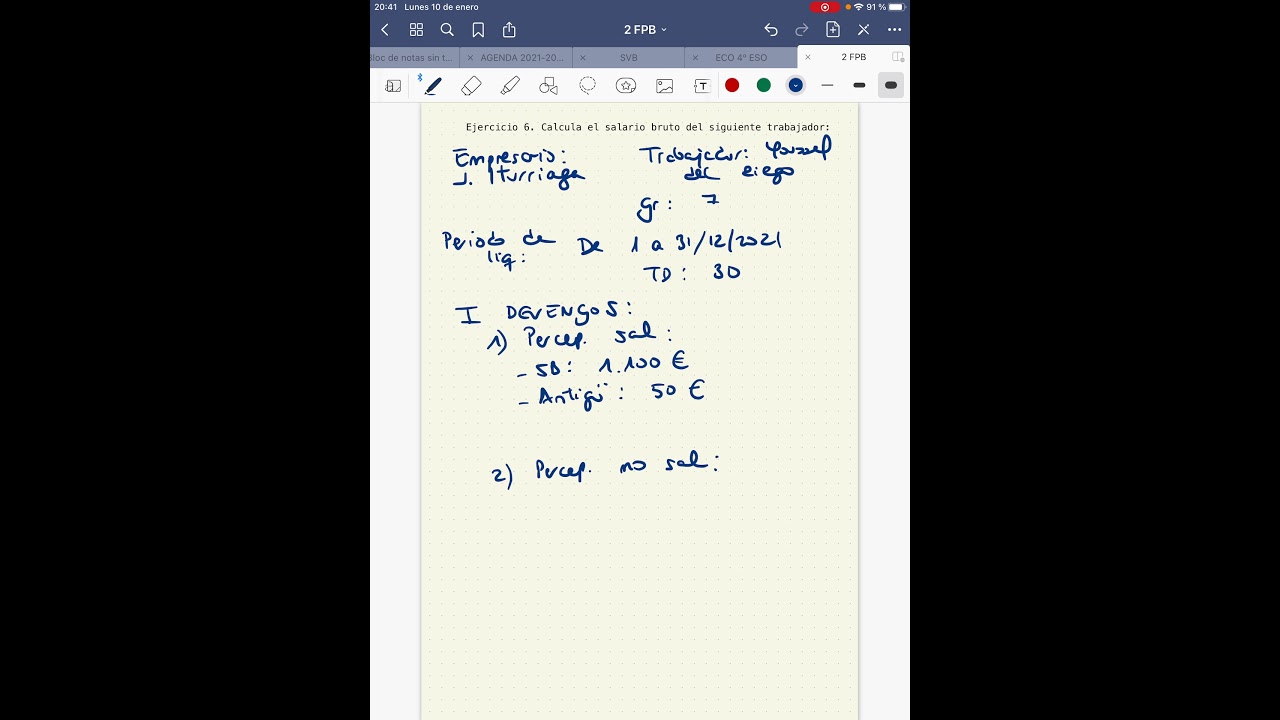 20:41 Lunes 10 de enero 91 %
2 FPB
Bloc de notas sin t... AGENDA 2021-20... SVB ECO 4º ESO 2 FPB
Ejercicio 6. Calcula el salario bruto del siguiente trabajador:
Empresario: Trabajador:
J. Iturriaga del ciego
gr: 7
Periodo de De 1 a 31/12/2021
liq:
TD: 30
I DEVENGOS:
1) Percep. sal:
- SB: 1.100 €
- Antigü: 50 €
2) Percep. no sal: